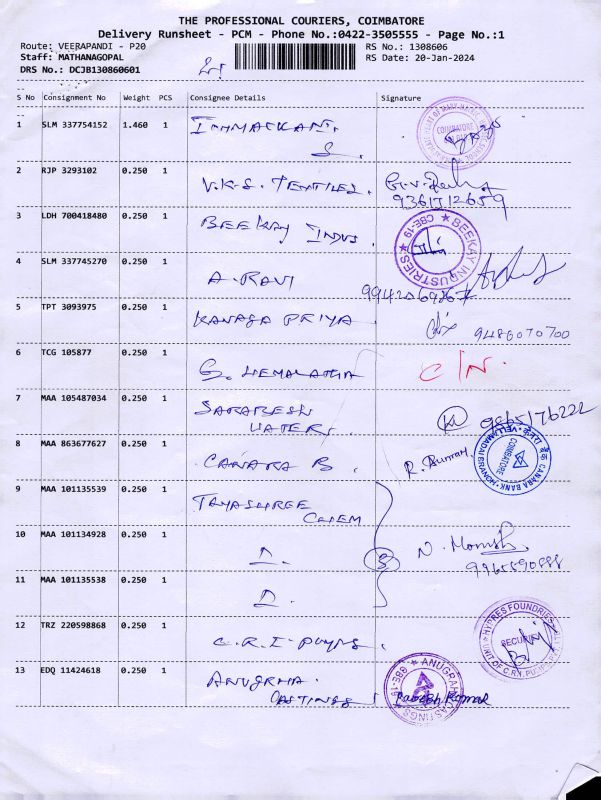 THE PROFESSIONAL COURIERS, COIMBATORE
Delivery Runsheet - PCM - Phone No.:0422-3505555 - Page No.:1
Route: VEERAPANDI - P20
RS No.: 1308606
Staff: MATHANAGOPAL
RS Date: 20-Jan-2024
DRS No.: DCJB130860601
S No Consignment No Weight PCS Consignee Details Signature
1 SLM 337754152 1.460 1
S.
COIMBATORE
2 RJP 3293102 0.250 1 V.K.S. TEXTILES.
9361712659
3 LDH 700418480 0.250 1 BEEKAY INDUS.
BEEKAY INDUSTRIES CBE-19
4 SLM 337745270 0.250 1 A. RAVI
5 TPT 3093975 0.250 1 KANAGA PRIYA. 9486070700
6 TCG 105877 0.250 1 G. HEMALATHA C/N.
7 MAA 105487034 0.250 1 SARABESH
WATERS. 9865176222
8 MAA 863677627 0.250 1 CANARA B.
CANARA BANK COIMBATORE
9 MAA 101135539 0.250 1 JAYASHREE
CHEM
10 MAA 101134928 0.250 1 D. 3
11 MAA 101135538 0.250 1 D.
12 TRZ 220598868 0.250 1 C.R.I PUMPS.
HYPRES FOUNDRIES SECURITY
13 EDQ 11424618 0.250 1 ANUGRHA
CASTINGS Ramesh Kumar